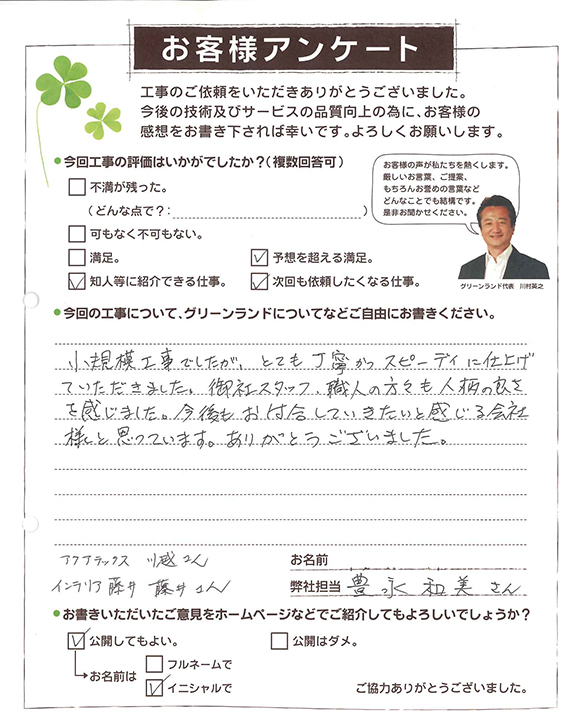 お客様アンケート
工事のご依頼をいただきありがとうございました。
今後の技術及びサービスの品質向上の為に、お客様の
感想をお書き下されば幸いです。よろしくお願いします。
●今回工事の評価はいかがでしたか？（複数回答可）
不満が残った。
（どんな点で？：　）
可もなく不可もない。
満足。
予想を超える満足。
知人等に紹介できる仕事。
次回も依頼したくなる仕事。
お客様の声が私たちを熱くします。
厳しいお言葉、ご提案、
もちろんお誉めの言葉など
どんなことでも結構です。
是非お聞かせください。
グリーンランド代表　川村英之
●今回の工事について、グリーンランドについてなどご自由にお書きください。
小規模工事でしたが、とても丁寧かつスピーディに仕上げ
ていただきました。御社スタッフ、職人の方々も人柄の良さ
を感じました。今後もお付合していきたいと感じる会社
様と思っています。ありがとうございました。
アクアラックス 川越さん
インテリア藤井 藤井さん
お名前
弊社担当 豊永和美さん
●お書きいただいたご意見をホームページなどでご紹介してもよろしいでしょうか？
公開してもよい。
公開はダメ。
お名前は
フルネームで
イニシャルで
ご協力ありがとうございました。